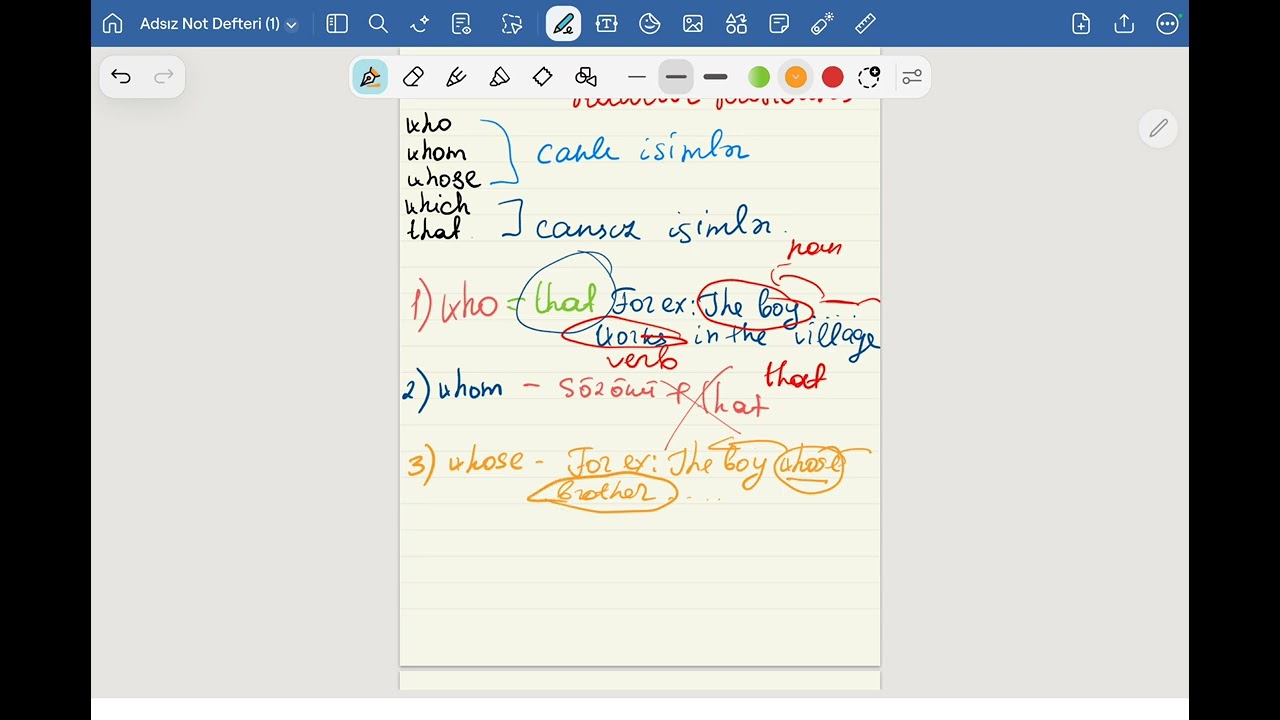 Adsız Not Defteri (1)
who
whom
whose
canlı isimlər
which
that
cansız isimlər.
noun
1) who = that For ex: The boy .....
works in the village
verb
2) whom - sözönü + that
that
3) whose - For ex: The boy whose
brother ....